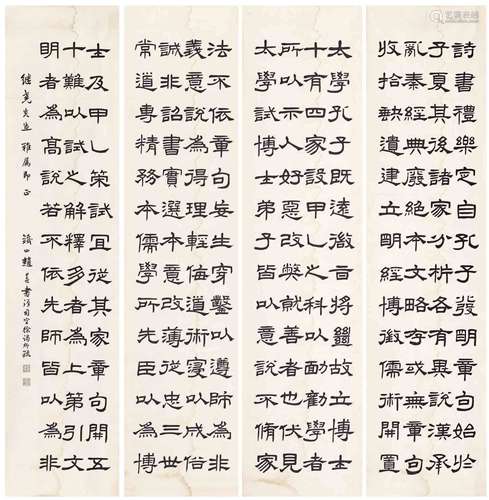 詩書禮樂定自孔子發明章句始於
子夏其後諸家分析各有異說漢承
亂秦經典廢絕本文略存或無章句
收拾缺遺建立明經博徵儒術開置
太學孔子既遠微旨將絕故立博士
十有四家設甲乙之科以勉勸學者
所以示人好惡改敝就善者也伏見
太學試博士弟子皆以意說不脩家
法不依章句妄生穿鑿以遵師為非
義意說為得理輕侮道術寖以成俗
誠非詔書實選本意改薄從忠三世
常道專精務本儒學所先臣以為博
士及甲乙策試宜從其家章句開五
十難以試之解釋多者為上第引文
明者為高說若不依先師皆以為非
先生雅屬即正
趙 書 司空徐防疏